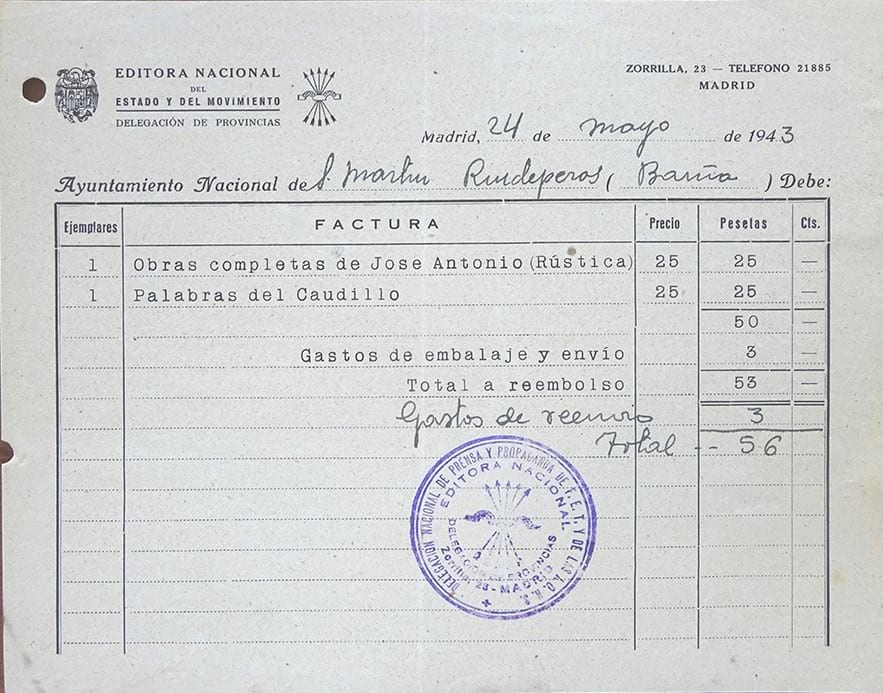 EDITORA NACIONAL
DEL
ESTADO Y DEL MOVIMIENTO
DELEGACIÓN DE PROVINCIAS
ZORRILLA, 23 — TELEFONO 21885
MADRID
Madrid, 24 de mayo de 1943
Ayuntamiento Nacional de S. Martin Rindeperos ( Barña ) Debe:
Ejemplares FACTURA Precio Pesetas Cts.
1 Obras completas de Jose Antonio (Rústica) 25 25 —
1 Palabras del Caudillo 25 25 —
50 —
Gastos de embalaje y envío 3 —
Total a reembolso 53 —
Gastos de reenvio 3
Total -- 56
DELEGACION NACIONAL DE PRENSA Y PROPAGANDA DE F. E. T. Y DE LAS J. O. N. S.
EDITORA NACIONAL
DELEGACION DE PROVINCIAS
Zorrilla, 23 - MADRID